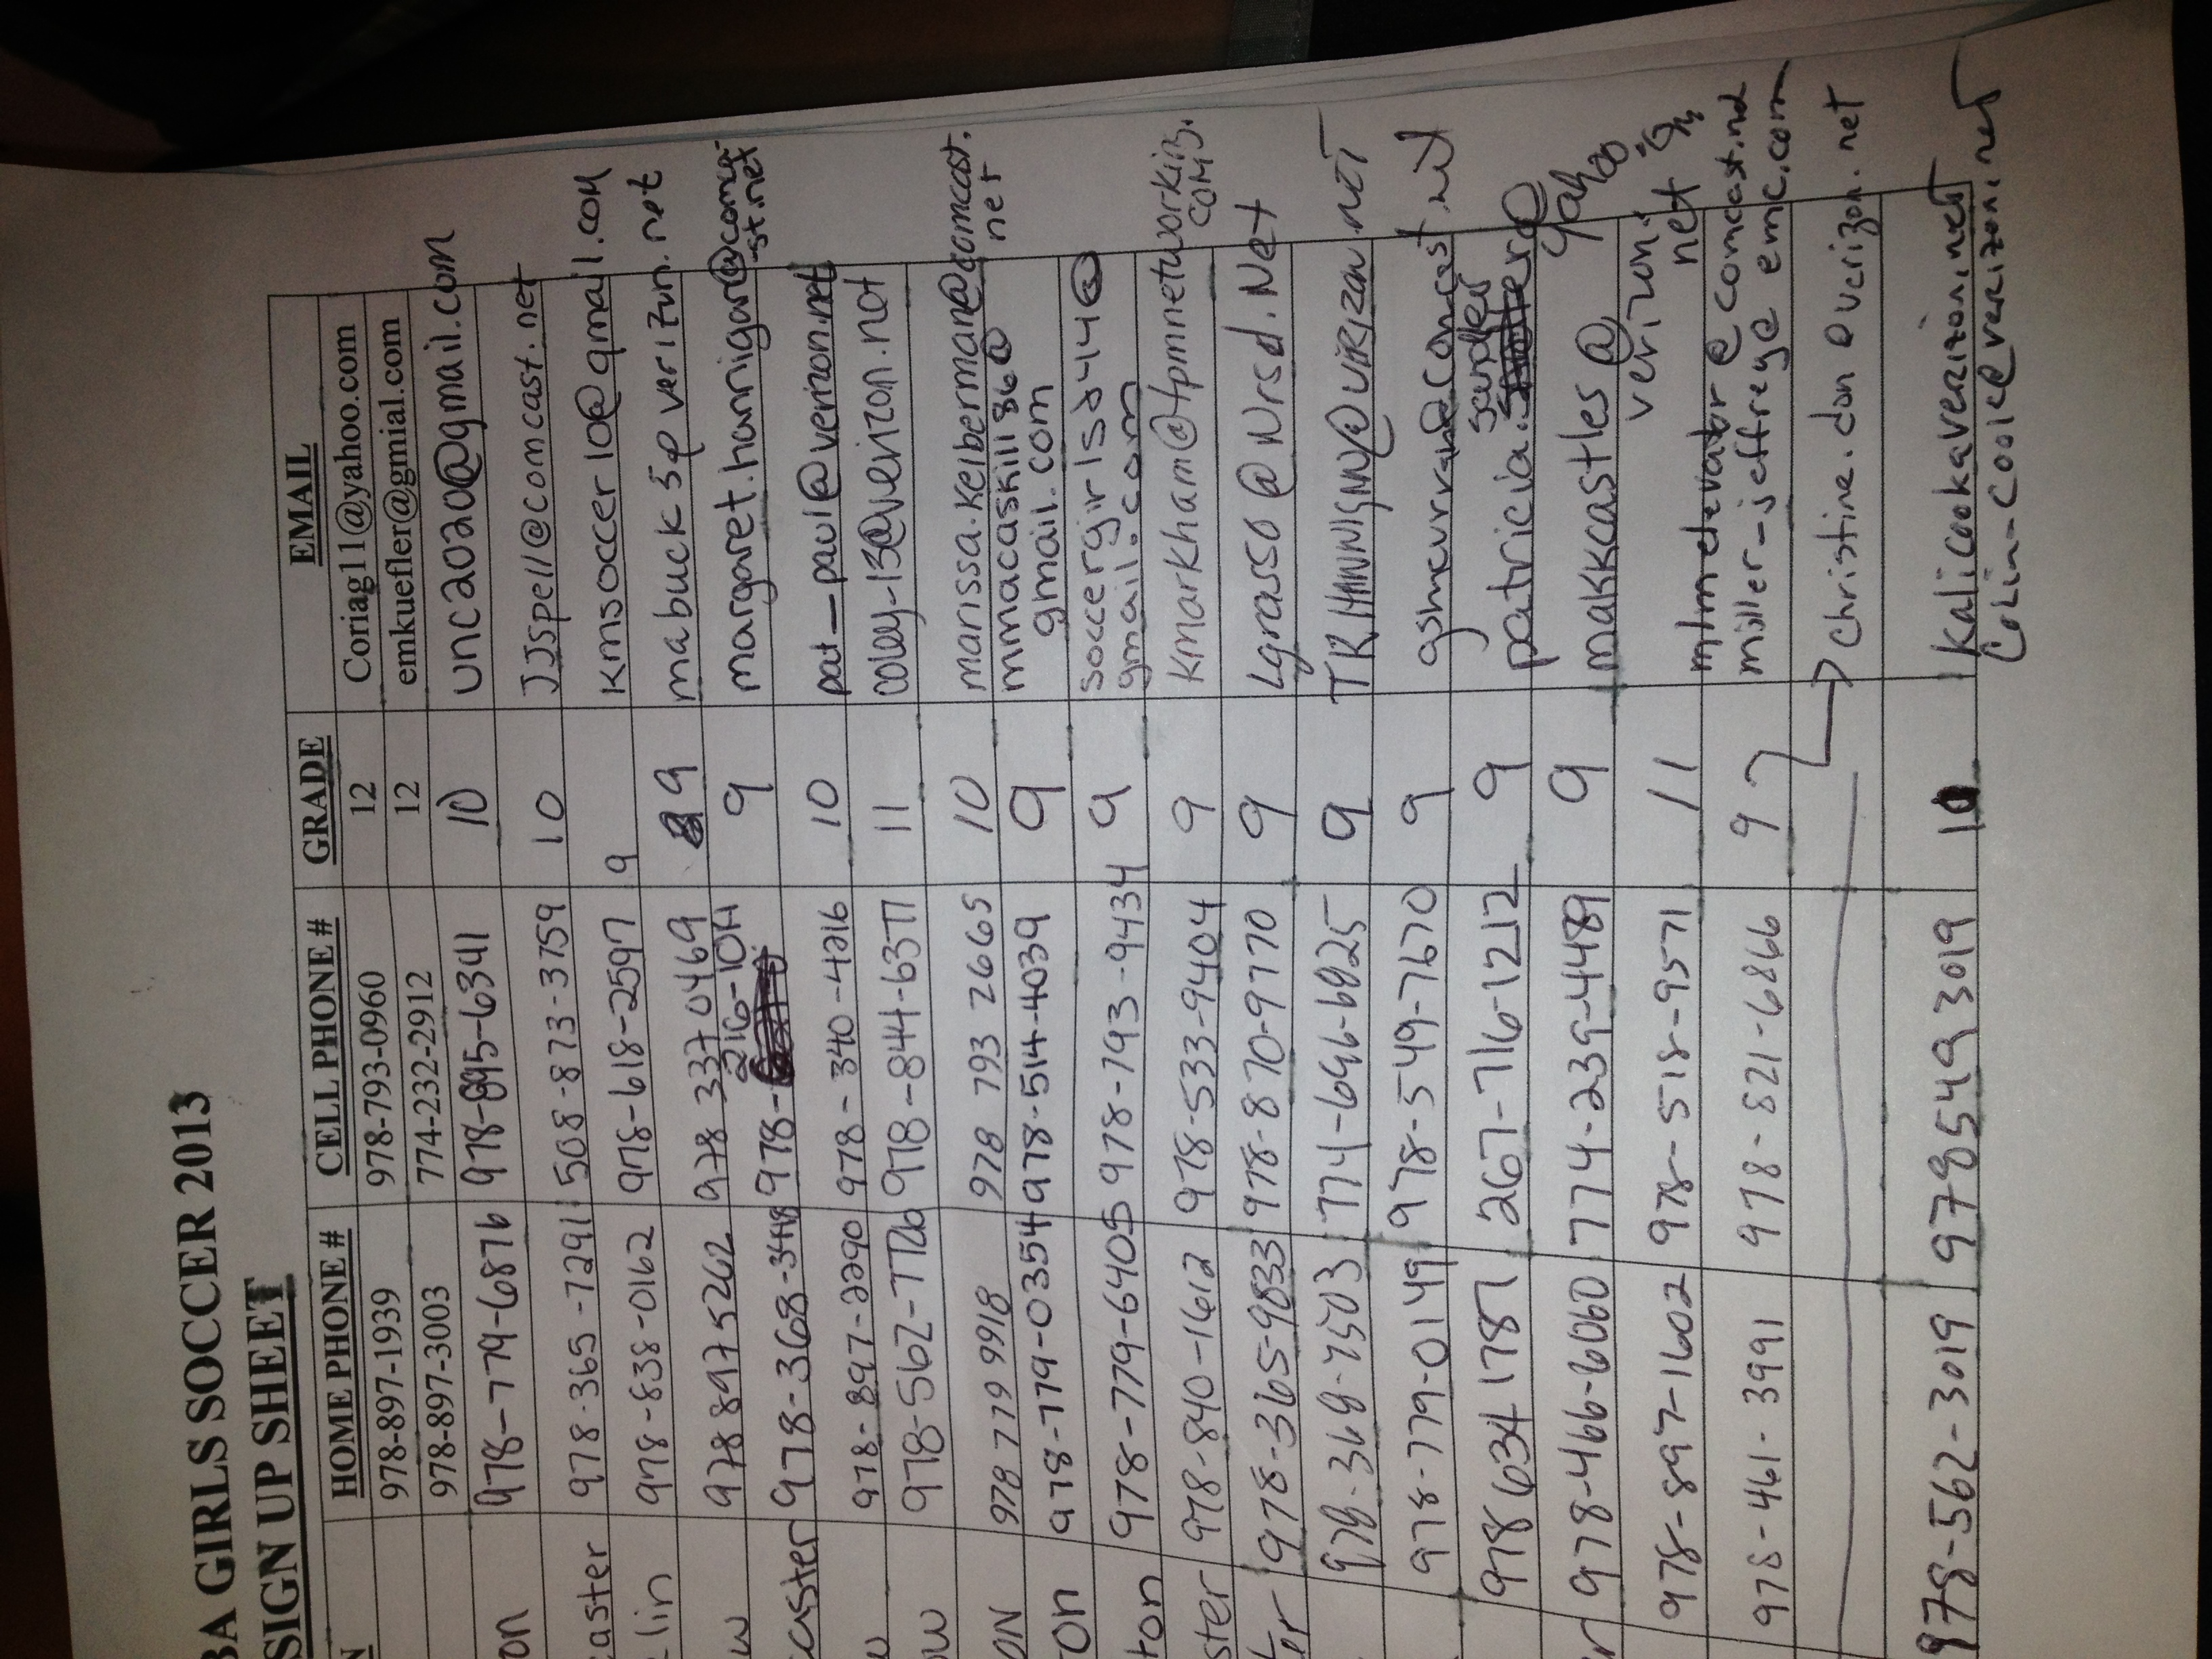 BA GIRLS SOCCER 2013
SIGN UP SHEET
N HOME PHONE # CELL PHONE # GRADE EMAIL
978-897-1939 978-793-0960 12 Coriag11@yahoo.com
978-897-3003 774-232-2912 12 emkuefler@gmial.com
on 978-779-6876 978-895-6341 10 unc2020@gmail.com
caster 978-365-7291 508-873-3759 10 JJSpell@comcast.net
lin 978-838-0162 978-618-2597 9 kmsoccer10@gmail.com
w 978 897 5262 978 337 0469 9 mabuck5@verizon.net
caster 978-368-3448 978-216-1014 9 margaret.hannigan@comca-
st.net
w 978-897-2290 978-340-4216 10 pat_paul@verizon.net
ow 978-562-7726 978-844-6377 11 colby-13@verizon.net
ON 978 779 9918 978 793 2665 10 marissa.kelberman@comcast.
net
on 978-779-0354 978-514-4039 9 mmacaskill86@
gmail.com
ton 978-779-6405 978-793-9434 9 soccergirlsd414@
gmail.com
ster 978-840-1612 978-533-9404 9 kmarkham@tpmnetworking.
com
ter 978-365-9833 978-870-9770 9 Lgrasso@Nrsd.Net
978-368-7503 774-696-6825 9 TRHANNIGAN@VERIZON.NET
978-779-0149 978-549-7670 9 gsmcurran@comcast.net
978 634 1787 267-716-1212 9 patricia.sandler@
yahoo
r 978-466-6060 774-239-4489 9 makkcastles@
verizon.
net
978-897-1602 978-518-9571 11 mhmelevator@comcast.net
978-461-3991 978-821-6866 9 miller_jeffrey@emc.com
christine.don@verizon.net
978-562-3019 978 549 3019 10 Kalicook@verizon.net
Colin-Cook@verizon.net